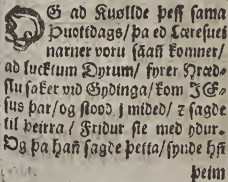 OG ad Kuøllde þess sama
Þuottdags/ þa ed Læresuei
narner voru sañañ komner/
ad lucktum Dyrum/ fyrer Hræd-
slu saker vid Gydinga/ kom JE-
sus þar/ og stood j mided/ ꝛ sagde
til þeirra/ Fridur sie med ydur.
Og þa hañ sagde þetta/ synde hñ
þeim